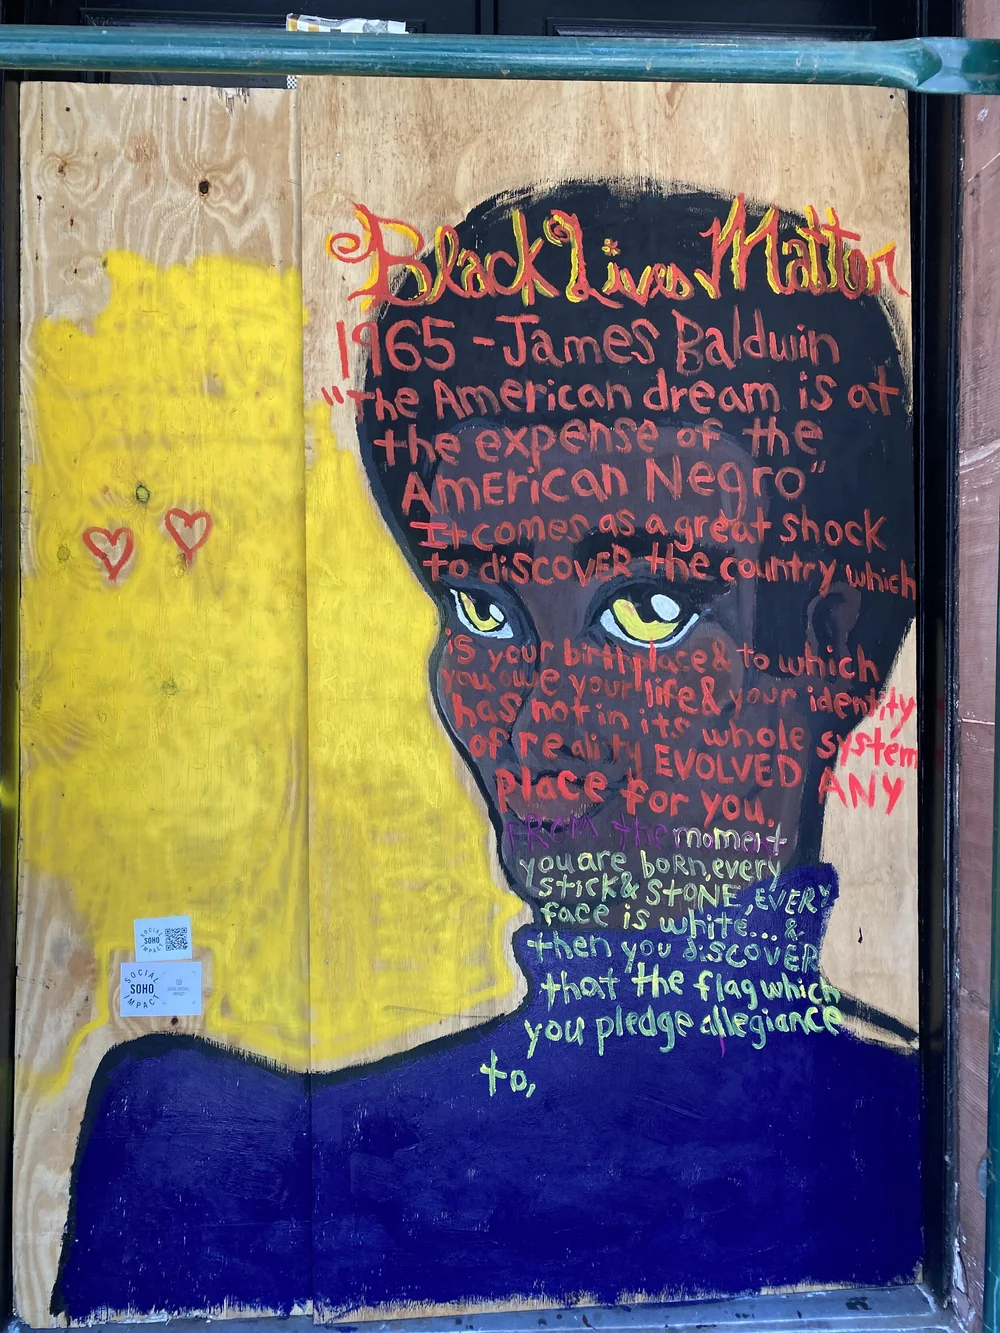 Black Lives Matter
1965 - James Baldwin
"The American dream is at
the expense of the
American Negro"
It comes as a great shock
to discover the country which
is your birthplace & to which
you owe your life & your identity
has not in its whole system
of reality EVOLVED ANY
place for you.
FROM the moment
you are born, every
stick & STONE, EVERY
face is white... &
then you discover
that the flag which
you pledge allegiance
to,
SOCIAL
SOHO
IMPACT
SOCIAL
SOHO
IMPACT